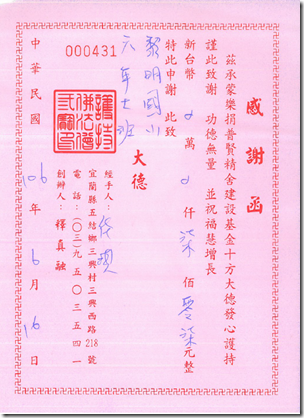 感謝函
茲承蒙樂捐普賢精舍建設基金十方大德發心護持
謹此致謝 功德無量 並祝福慧增長
新台幣 0 萬 0 仟 柒 佰 零柒 元整
特此申謝 此致
黎明國小
六年七班
大德
000431
經手人：
宜蘭縣五結鄉三興村三興西路218號
電話：(〇三)九五〇三五四一
創辦人：釋真融
中華民國 106 年 6 月 16 日